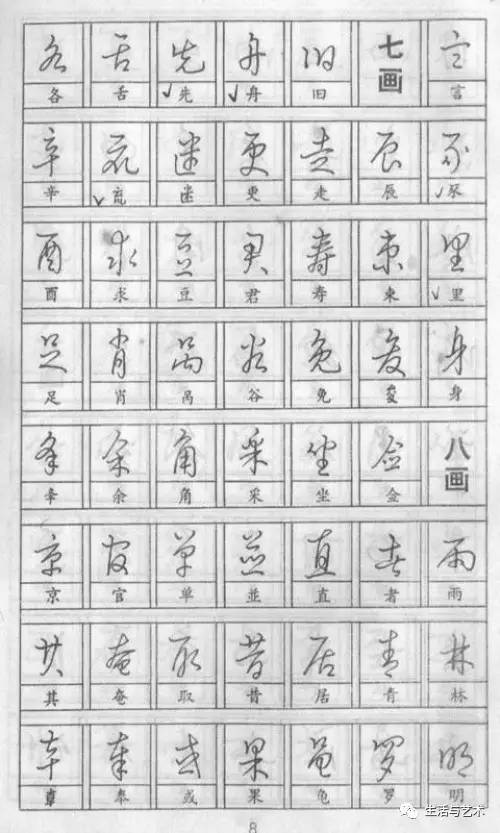 各 舌 先 舟 旧 七画 言
各 舌 √先 √舟 旧 言
辛 㐬 更 走 辰 豕
辛 √㐬 更 走 辰 √豕
酉 求 豆 君 寿 束 里
酉 求 豆 君 寿 束 √里
足 肖 呙 谷 免 身
足 肖 呙 谷 免 身
夆 余 角 采 坐 佥 八画
夆 余 角 采 坐 佥
京 官 单 並 直 者 雨
京 官 单 並 直 者 雨
其 奄 取 昔 居 青 林
其 奄 取 昔 居 青 林
卓 奉 或 果 罗 明
卓 奉 或 果 罗 明
8
生活与艺术